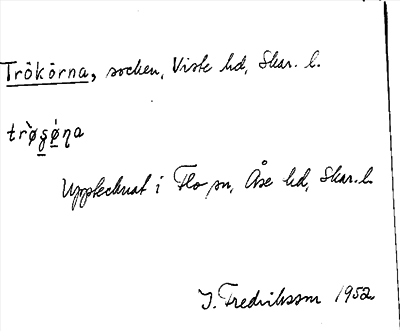 Trökörna, socken, Viste hd, Skar. l.
trø̀gǿna
Upptecknat i Flo sn, Åse hd, Skar. l.
I. Fredriksson 1952